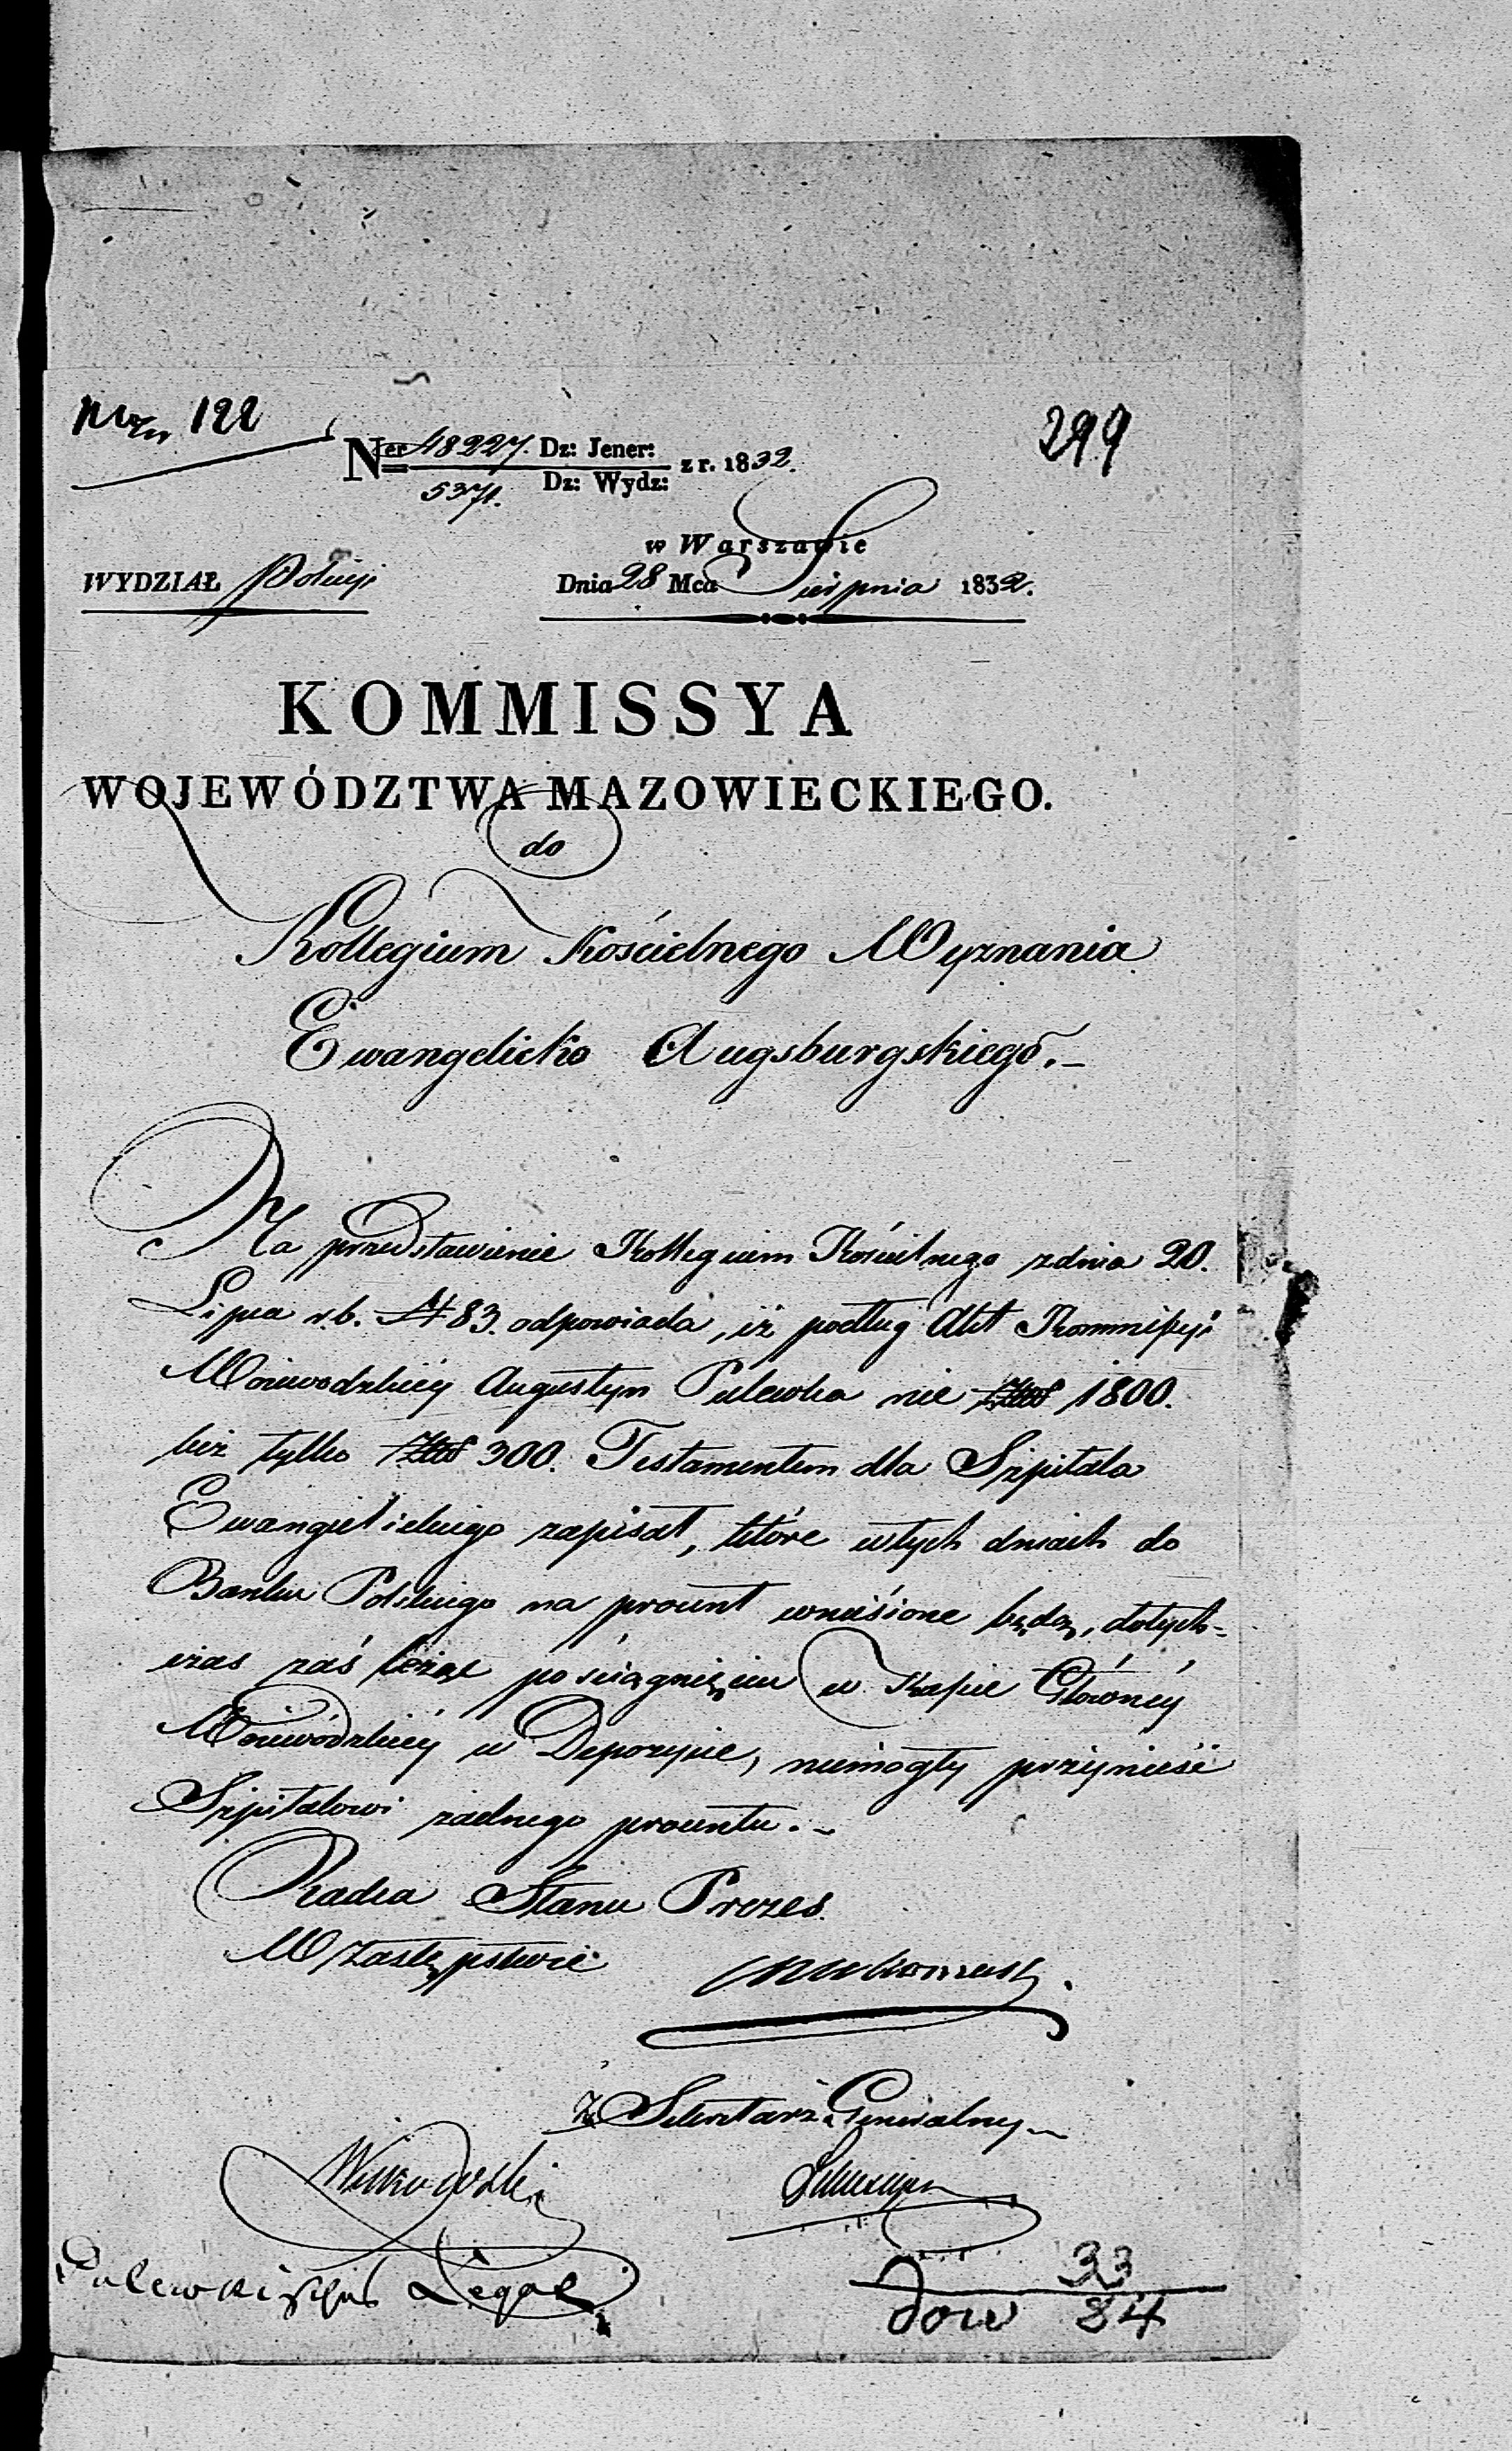 122
299
Ner 48227. Dz: Jener: z r. 1832.
5371. Dz: Wydz:
w Warszawie
WYDZIAŁ Policyi Dnia 28 Mca Sierpnia 1832.
KOMMISSYA
WOJEWÓDZTWA MAZOWIECKIEGO.
do
Kollegium Kościelnego Wyznania
Ewangelicko Augsburgskiego.–
Na przedstawienie Kollegium Kościelnego z dnia 20.
Lipca r.b. N 83. odpowiada, iż podług Akt Kommissyi
Woiewodzkiéy Augustyn Pulewka nie Złot 1800.
lecz tylko Złot 300. Testamentem dla Szpitala
Ewangielickiego zapisał, które w tych dniach do
Banku Polskiego na procent wnieśione będą, dotych=
czas zaś leżąc po ściągnięciu w Kassie Głównéy
Woiewódzkiéy w Depozycie, niemogły przynieść
Szpitalowi żadnego procentu.–
Radca Stanu Prezes.
W Zastępstwie
Z Sekretarz Generalny
Legat
33
dow 84